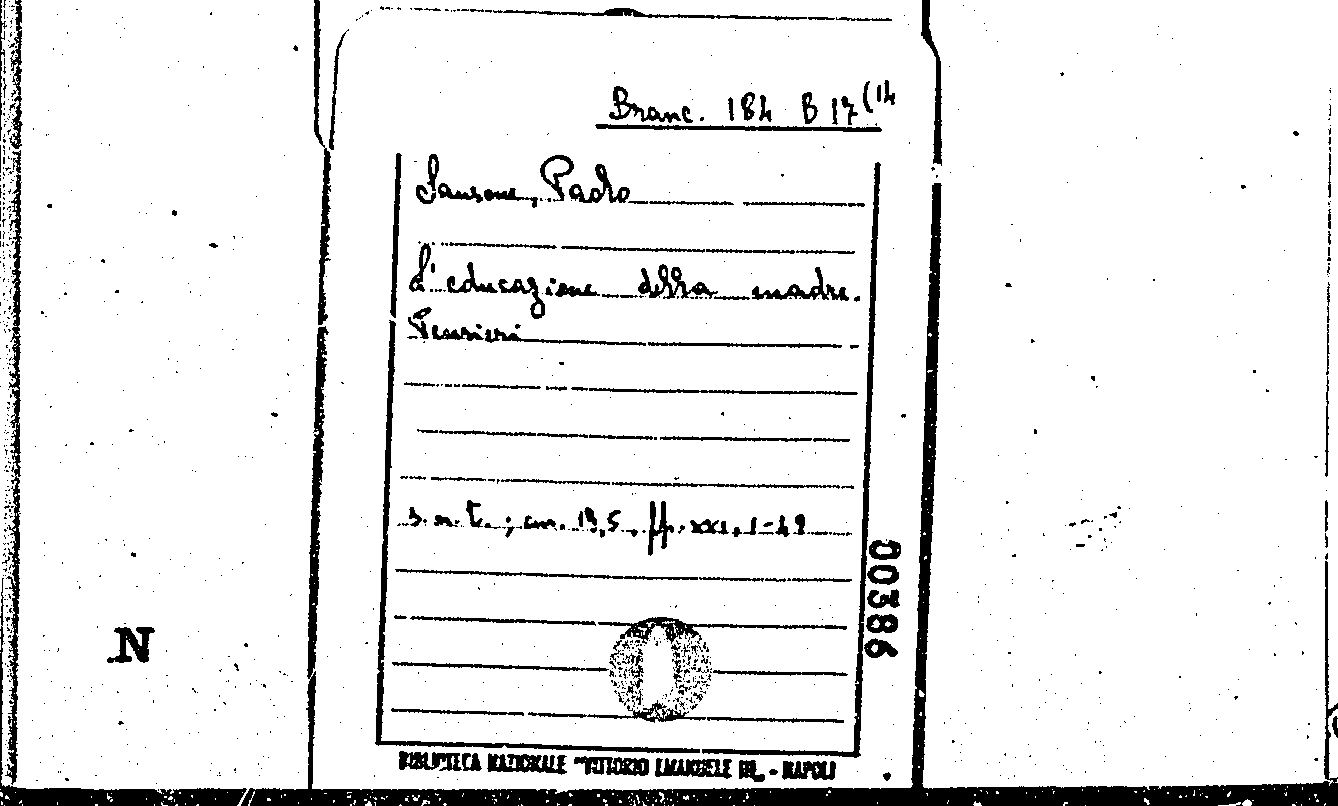 Branc. 184 B 17(14
Sansone, Paolo
L'educazione della madre.
Pensieri
s.n.t. ; cm. 19,5, pp. XXI, 1-49
00386
N
BIBLIOTECA NAZIONALE "VITTORIO EMANUELE III„ - NAPOLI